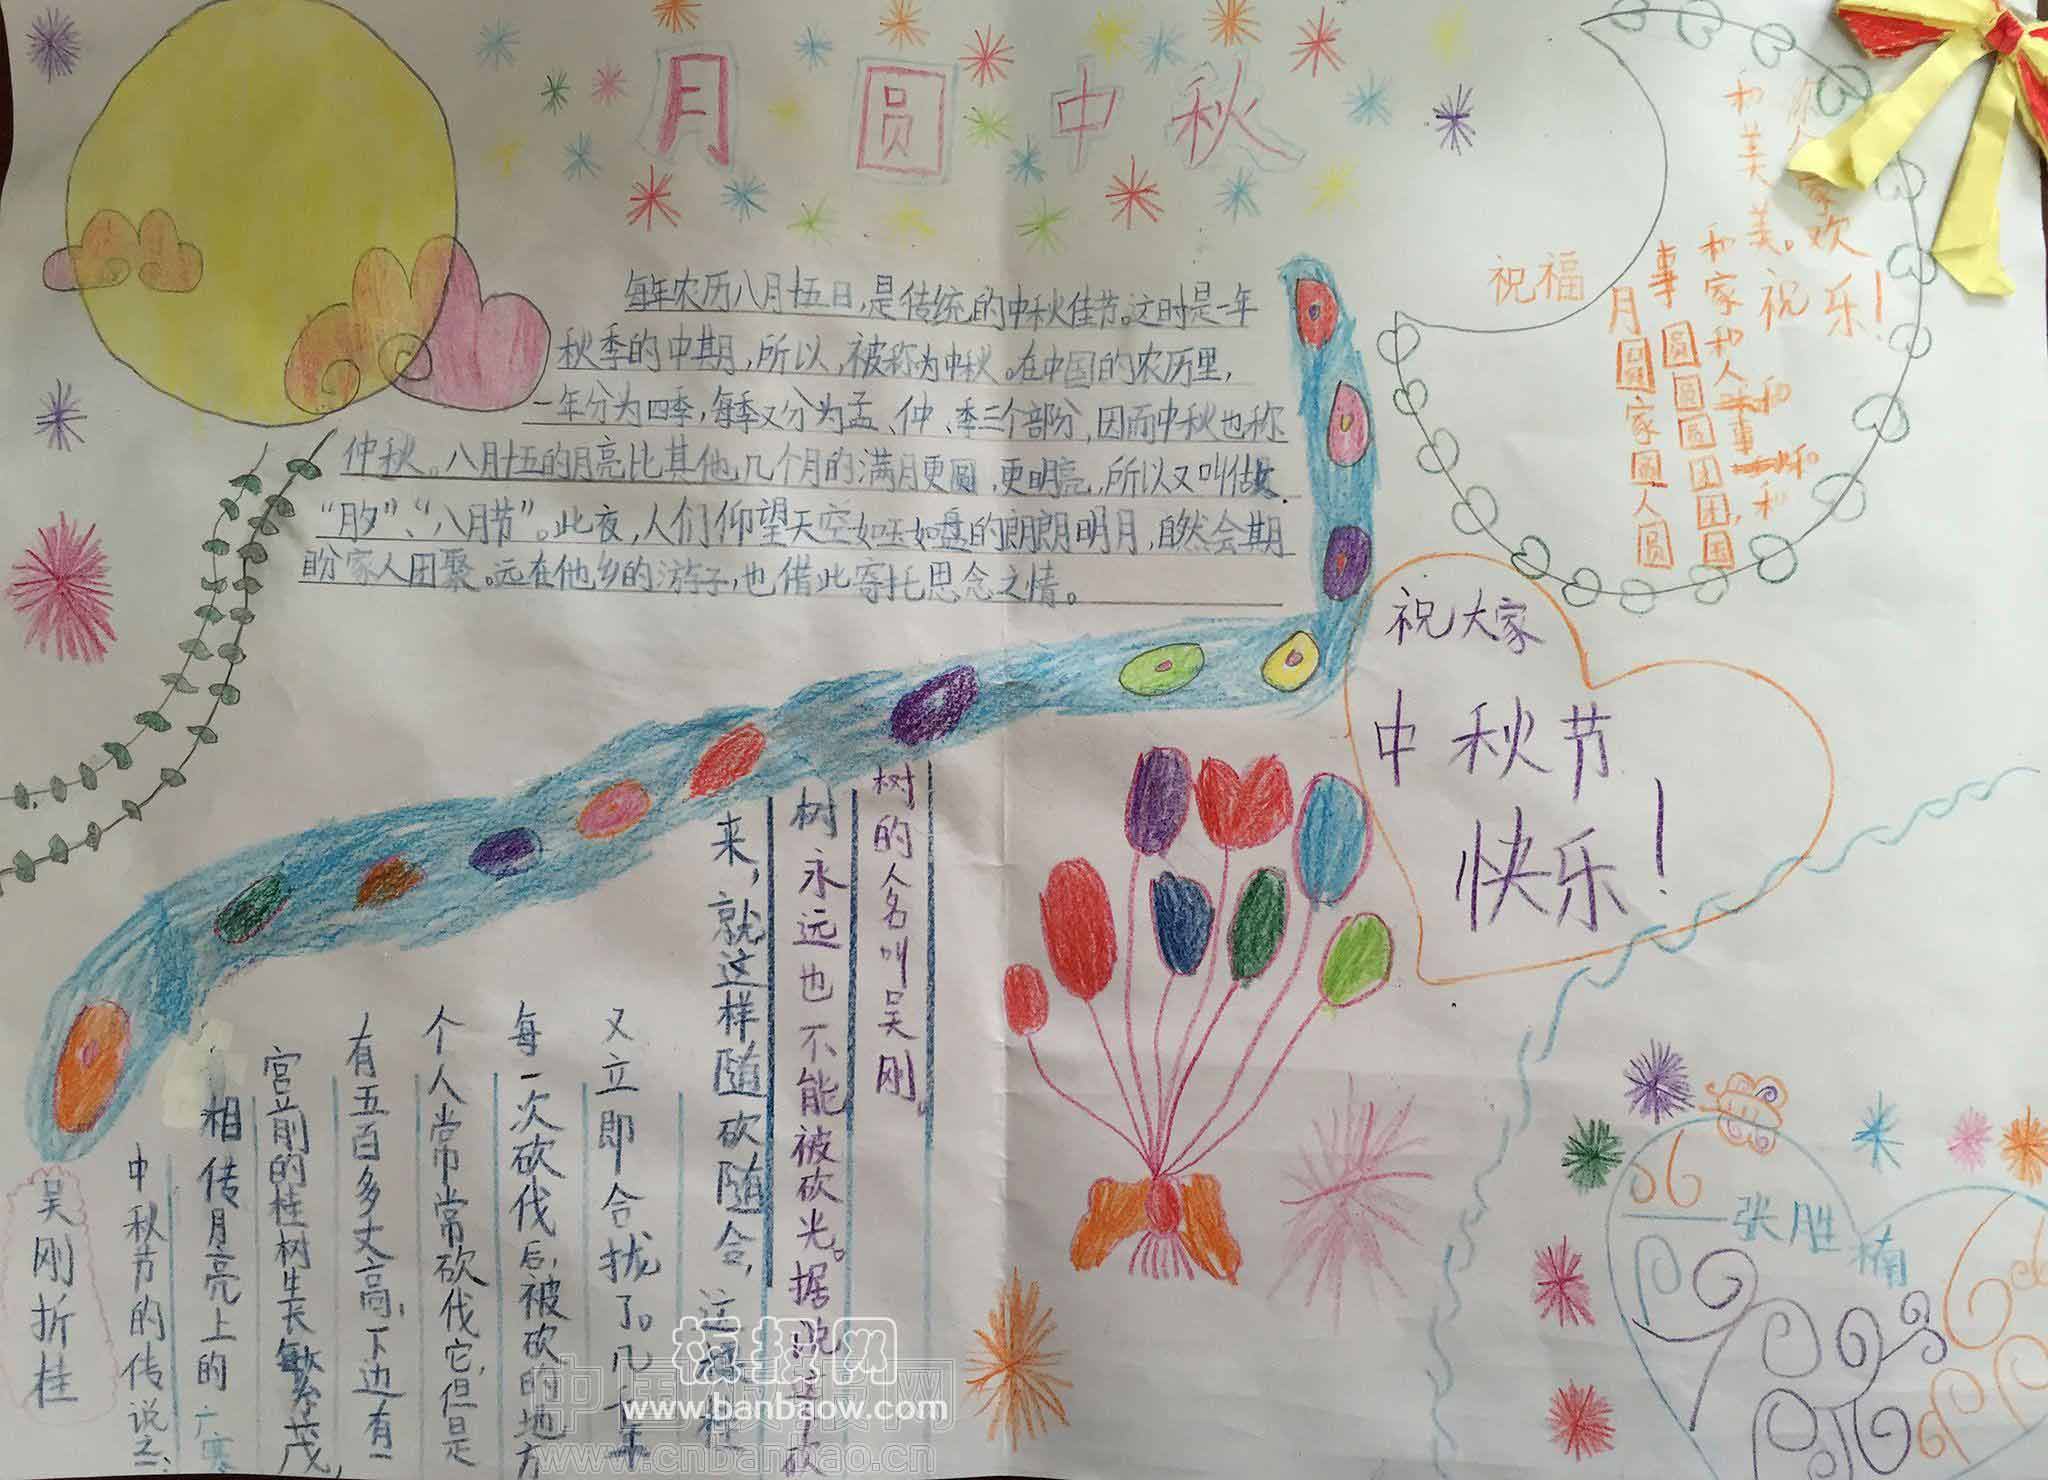 月圆中秋
每年农历八月十五日,是传统的中秋佳节。这时是一年
秋季的中期,所以,被称为中秋。在中国的农历里,
一年分为四季,每季又分为孟、仲、季三个部分,因而中秋也称
仲秋。八月十五的月亮比其他几个月的满月更圆,更明亮,所以又叫做
“月夕”、“八月节”。此夜,人们仰望天空如玉如盘的朗朗明月,自然会期
盼家人团聚。远在他乡的游子,也借此寄托思念之情。
祝福
月圆家圆人圆
事圆圆圆团团,国
和家和人和事和和
和美美。祝
人家欢乐!
祝大家
中秋节
快乐!
吴刚折桂
中秋节的传说之一:
相传月亮上的广寒
宫前的桂树生长繁茂,
有五百多丈高,下边有一
个人常常砍伐它,但是
每一次砍伐后,被砍的地方
又立即合拢了。几千年
来,就这样随砍随合,这棵桂
树永远也不能被砍光。据说这个砍
树的人名叫吴刚。
张胜楠
板报网
www.banbaow.com
中国板报网
www.cnbanbao.cn